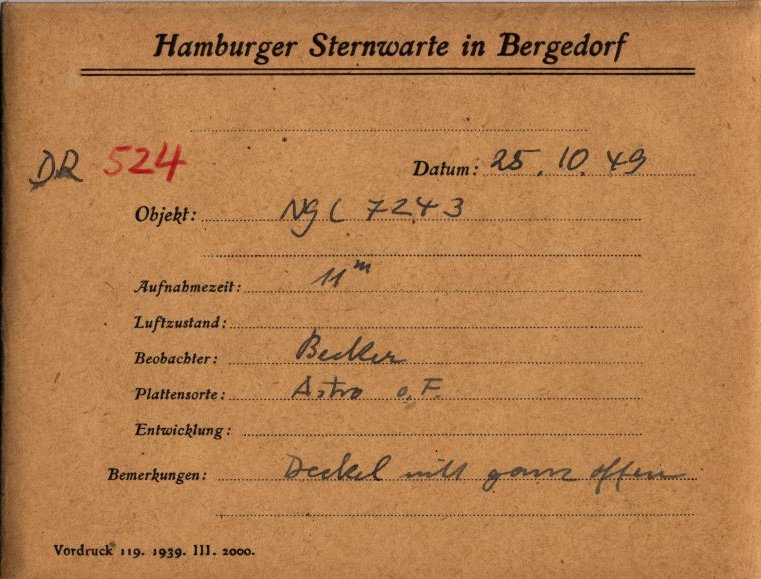 Hamburger Sternwarte in Bergedorf
DR 524 Datum: 25. 10. 49
Objekt: NGC 7243
Aufnahmezeit: 11m
Luftzustand:
Beobachter: Becker
Plattensorte: Astro o. F.
Entwicklung:
Bemerkungen: Deckel nicht ganz offen
Vordruck 119. 1939. III. 2000.